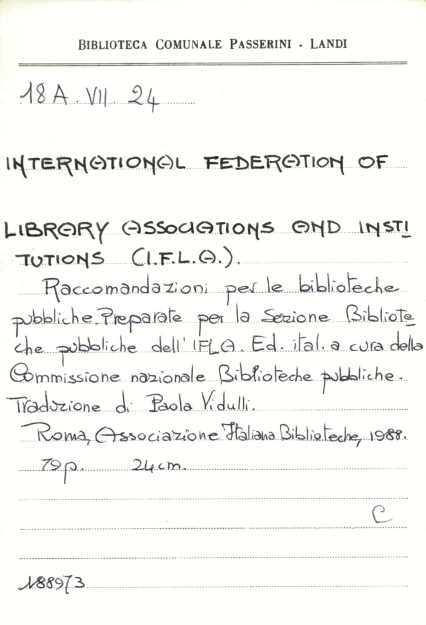 BIBLIOTECA COMUNALE PASSERINI - LANDI
18 A. VII. 24
INTERNATIONAL FEDERATION OF
LIBRARY ASSOCIATIONS AND INSTI
TUTIONS (I.F.L.A.).
Raccomandazioni per le biblioteche
pubbliche. Preparate per la Sezione Bibliote
che pubbliche dell' IFLA. Ed. ital. a cura della
Commissione nazionale Biblioteche pubbliche.
Traduzione di Paola Vidulli.
Roma, Associazione Italiana Biblioteche, 1988.
79 p. 24 cm.
C
188973